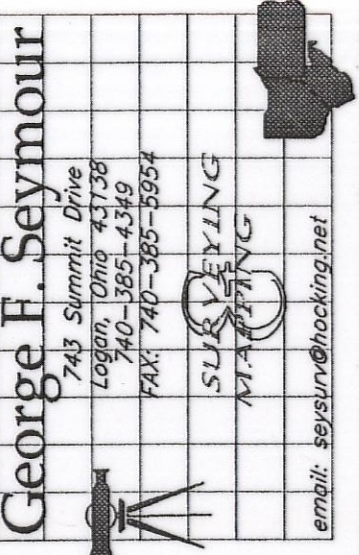 George F. Seymour
743 Summit Drive
Logan, Ohio 43138
740-385-4349
FAX: 740-385-5954
SURVEYING
&
MAPPING
email: seysurv@hocking.net